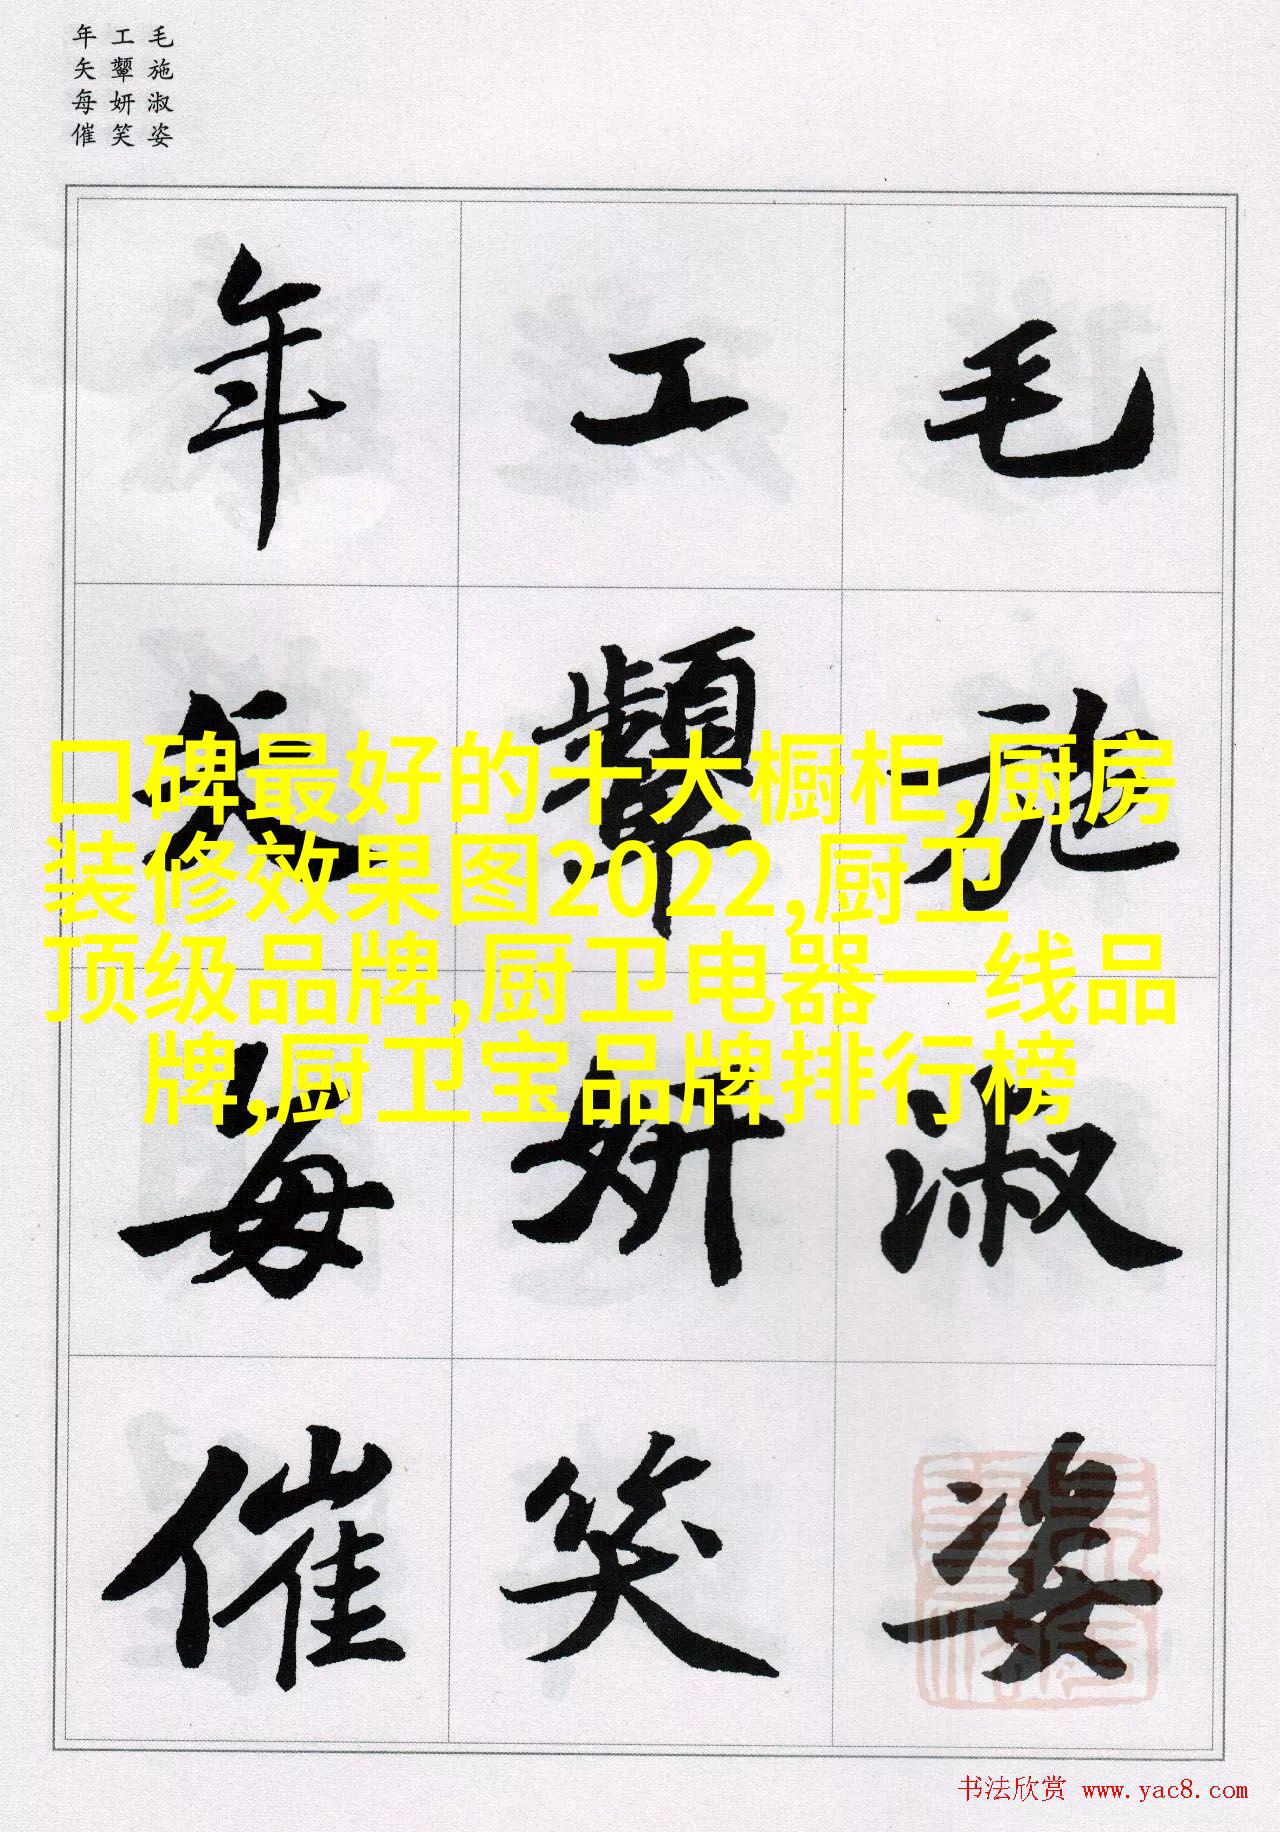 毛施淑姿
工颦妍笑
年矢每催
毛施淑姿
工颦妍笑
年矢每催
口碑最好的十大橱柜,厨房
装修效果图2022,厨卫
顶级品牌,厨卫电器一线品
牌,厨卫宝品牌排行榜
书法欣赏 www.yac8.com